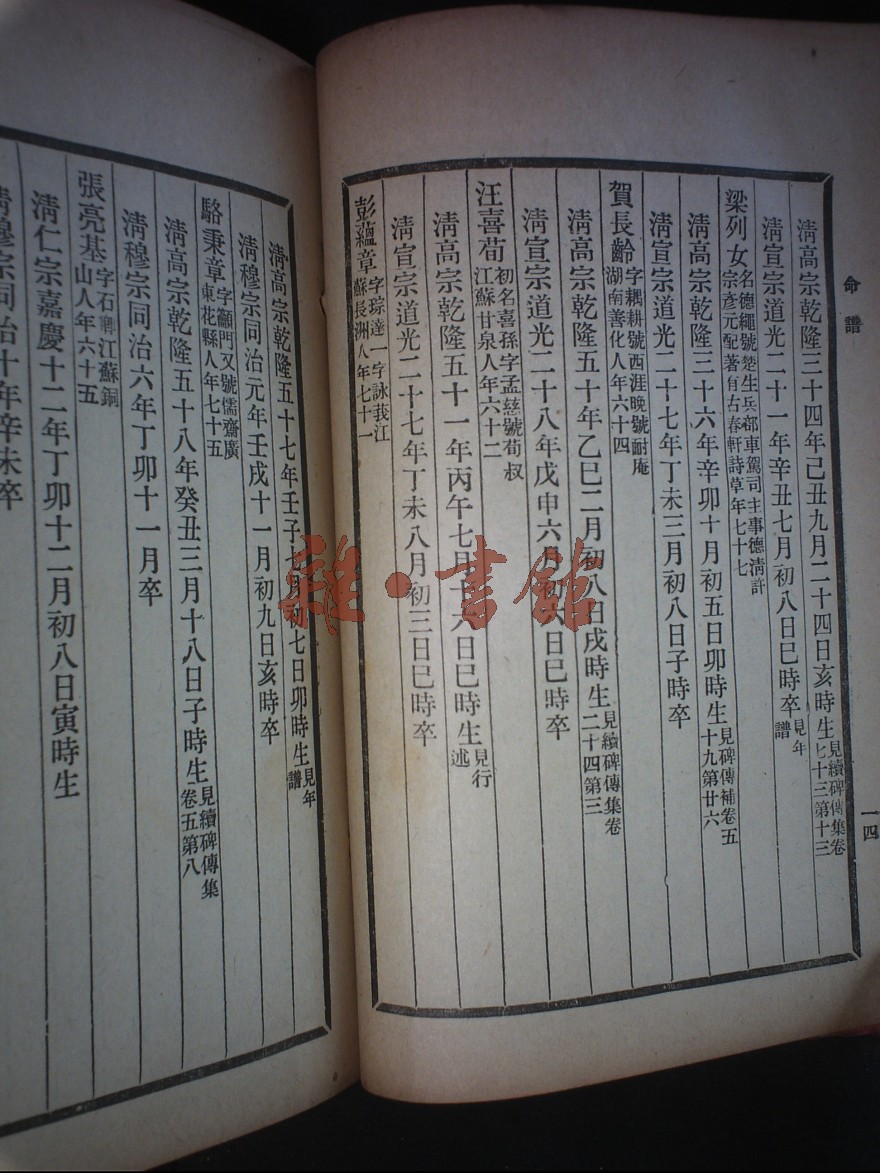 命譜
一四
清高宗乾隆三十四年己丑九月二十四日亥時生見續碑傳集卷七十三第十三
清宣宗道光二十一年辛丑七月初八日巳時卒見年譜
梁列女名德繩號楚生兵部車駕司主事德清許宗彥元配著有古春軒詩草年七十七
清高宗乾隆三十六年辛卯十月初五日卯時生見碑傳補卷五十九第廿六
清宣宗道光二十七年丁未三月初八日子時卒
賀長齡字耦耕號西涯晚號耐庵湖南善化人年六十四
清高宗乾隆五十年乙巳二月初八日戌時生見續碑傳集卷二十四第三
清宣宗道光二十八年戊申六月初六日巳時卒
汪喜荀初名喜孫字孟慈號荀叔江蘇甘泉人年六十二
清高宗乾隆五十一年丙午七月十六日巳時生見行述
清宣宗道光二十七年丁未八月初三日巳時卒
彭蘊章字琮達一字詠莪江蘇長洲人年七十一
清高宗乾隆五十七年壬子七月初七日卯時生見年譜
清穆宗同治元年壬戌十一月初九日亥時卒
駱秉章字籲門又號儒齋廣東花縣人年七十五
清高宗乾隆五十八年癸丑三月十八日子時生見續碑傳集卷五第八
清穆宗同治六年丁卯十一月卒
張亮基字石卿江蘇銅山人年六十五
清仁宗嘉慶十二年丁卯十二月初八日寅時生
清穆宗同治十年辛未卒
雜·書館